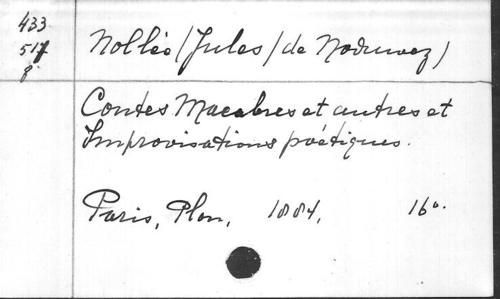 433
517
8
Nollée (Jules) de Noduwez)
Contes Macabres et autres et
Improvisations poétiques.
Paris, Plon, 1884, 16°.